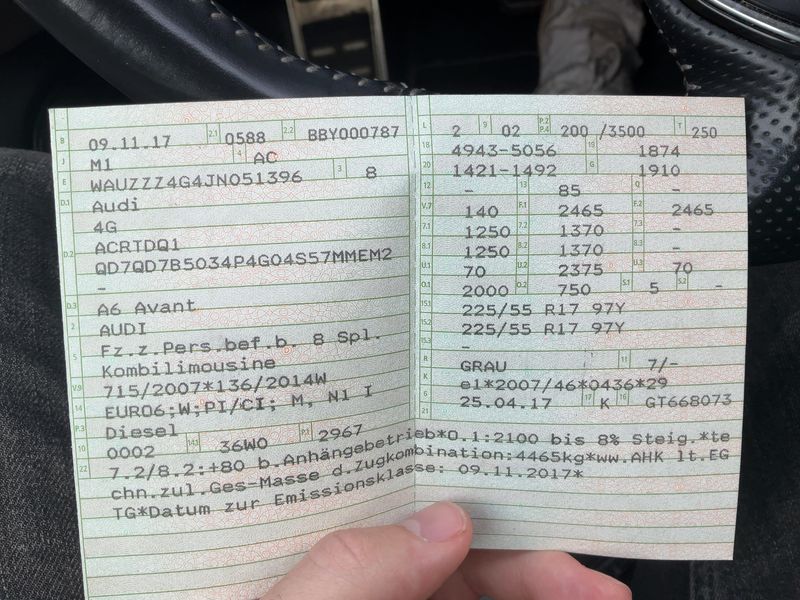 B 09.11.17 2.1 0588 2.2 BBY000787
J M1 4 AC
E WAUZZZ4G4JN051396 3 8
D.1 Audi
4G
D.2 ACRTDQ1
QD7QD7B5034P4G04S57MMEM2
-
D.3 A6 Avant
2 AUDI
5 Fz.z.Pers.bef.b. 8 Spl.
Kombilimousine
V.9 715/2007*136/2014W
14 EURO6;W;PI/CI; M, N1 I
P.3 Diesel
10 0002 14.1 36W0 P.1 2967
L 2 9 02 P.2 P.4 200 /3500 T 250
18 4943-5056 19 1874
20 1421-1492 G 1910
12 - 13 85 Q -
V.7 140 F.1 2465 F.2 2465
7.1 1250 7.2 1370 7.3 -
8.1 1250 8.2 1370 8.3 -
U.1 70 U.2 2375 U.3 70
O.1 2000 O.2 750 S.1 5 S.2 -
15.1 225/55 R17 97Y
15.2 225/55 R17 97Y
15.3 -
R GRAU 11 7/-
K e1*2007/46*0436*29
6 25.04.17 17 K 16 GT668073
21
22 7.2/8.2:+80 b.Anhängebetrieb*O.1:2100 bis 8% Steig.*te
chn.zul.Ges-Masse d.Zugkombination:4465kg*ww.AHK lt.EG
TG*Datum zur Emissionsklasse: 09.11.2017*